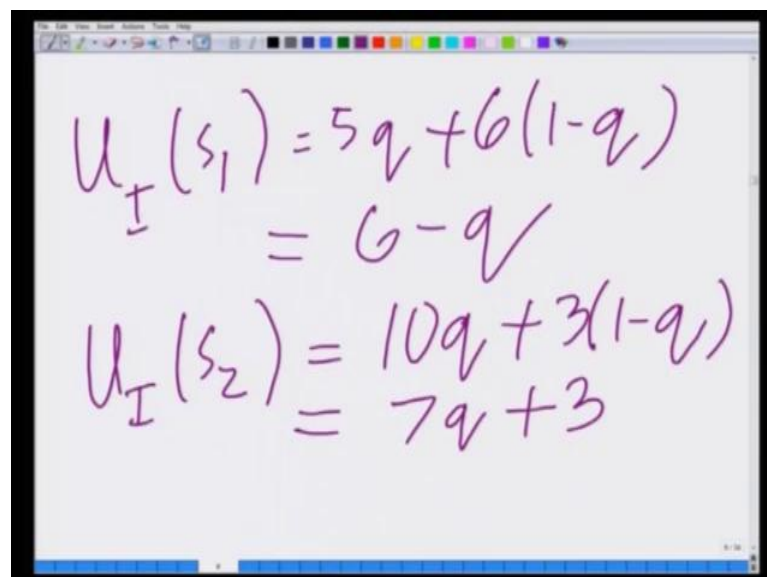 File Edit View Insert Actions Tools Help
U_I(S_1) = 5q + 6(1-q)
= 6-q
U_I(S_2) = 10q + 3(1-q)
= 7q + 3